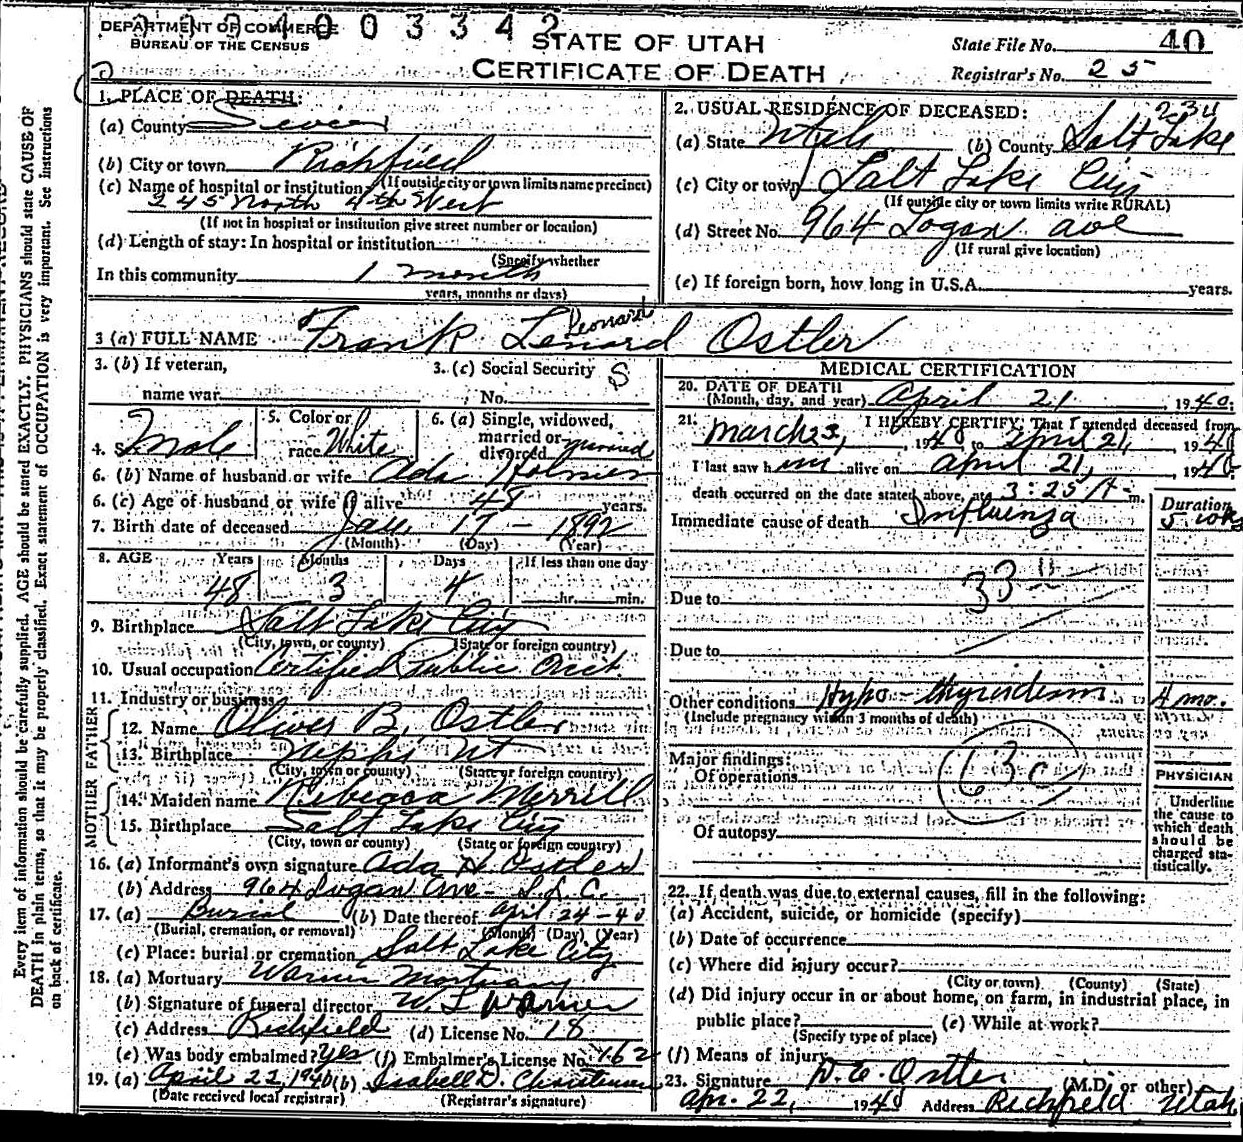 0 4 0 0 3 3 4 2
DEPARTMENT OF COMMERCE
BUREAU OF THE CENSUS
STATE OF UTAH
CERTIFICATE OF DEATH
State File No. 40
Registrar's No. 25
1. PLACE OF DEATH:
(a) County Sevier
(b) City or town Richfield
(If outside city or town limits name precinct)
(c) Name of hospital or institution
245 North 4th West
(If not in hospital or institution give street number or location)
(d) Length of stay: In hospital or institution
(Specify whether
In this community 1 month
years, months or days)
2. USUAL RESIDENCE OF DECEASED:
234
(a) State Utah (b) County Salt Lake
(c) City or town Salt Lake City
(If outside city or town limits write RURAL)
(d) Street No. 964 Logan ave
(If rural give location)
(e) If foreign born, how long in U.S.A. years.
Leonard
3 (a) FULL NAME Frank Lenard Ostler
3. (b) If veteran,
name war
3. (c) Social Security S
No.
4. Male
5. Color or
race White
6. (a) Single, widowed,
married or
divorced married
6. (b) Name of husband or wife Ada Holmes
6. (c) Age of husband or wife if alive 48 years.
7. Birth date of deceased Jan 17 - 1892
(Month) (Day) (Year)
8. AGE Years Months Days If less than one day
48 3 4 hr. min.
9. Birthplace Salt Lake City
(City, town, or county) (State or foreign country)
10. Usual occupation Certified Public Acct.
11. Industry or business
FATHER
12. Name Oliver B. Ostler
13. Birthplace Nephi Ut
(City, town or county) (State or foreign country)
MOTHER
14. Maiden name Rebecca Merrill
15. Birthplace Salt Lake City
(City, town or county) (State or foreign country)
16. (a) Informant's own signature Ada H Ostler
(b) Address 964 Logan Ave - S.L.C.
17. (a) Burial (b) Date thereof April 24-40
(Burial, cremation, or removal) (Month) (Day) (Year)
(c) Place: burial or cremation Salt Lake City
18. (a) Mortuary Warner Mortuary
(b) Signature of funeral director W L Warner
(c) Address Richfield (d) License No. 18
(e) Was body embalmed? Yes (f) Embalmer's License No. 462
19. (a) April 22, 1940 (b) Isabell D. Christensen
(Date received local registrar) (Registrar's signature)
MEDICAL CERTIFICATION
20. DATE OF DEATH
(Month, day, and year) April 21 1940.
21. I HEREBY CERTIFY, That I attended deceased from
March 23, 1940 to April 21, 1940
I last saw him alive on April 21, 1940
death occurred on the date stated above, at 3:25 A m.
Duration
Immediate cause of death Influenza 5 wks
33
Due to
Due to
Other conditions Hypo-thyroidism 4 mo.
(Include pregnancy within 3 months of death)
Major findings:
Of operations
63c
Of autopsy
PHYSICIAN
Underline
the cause to
which death
should be
charged sta-
tistically.
22. If death was due to external causes, fill in the following:
(a) Accident, suicide, or homicide (specify)
(b) Date of occurrence
(c) Where did injury occur?
(City or town) (County) (State)
(d) Did injury occur in or about home, on farm, in industrial place, in
public place? (e) While at work?
(Specify type of place)
(f) Means of injury
23. Signature D. E. Ostler (M.D. or other)
Apr. 22, 1940 Address Richfield Utah
Every item of information should be carefully supplied. AGE should be stated EXACTLY. PHYSICIANS should state CAUSE OF
DEATH in plain terms, so that it may be properly classified. Exact statement of OCCUPATION is very important. See instructions
on back of certificate.